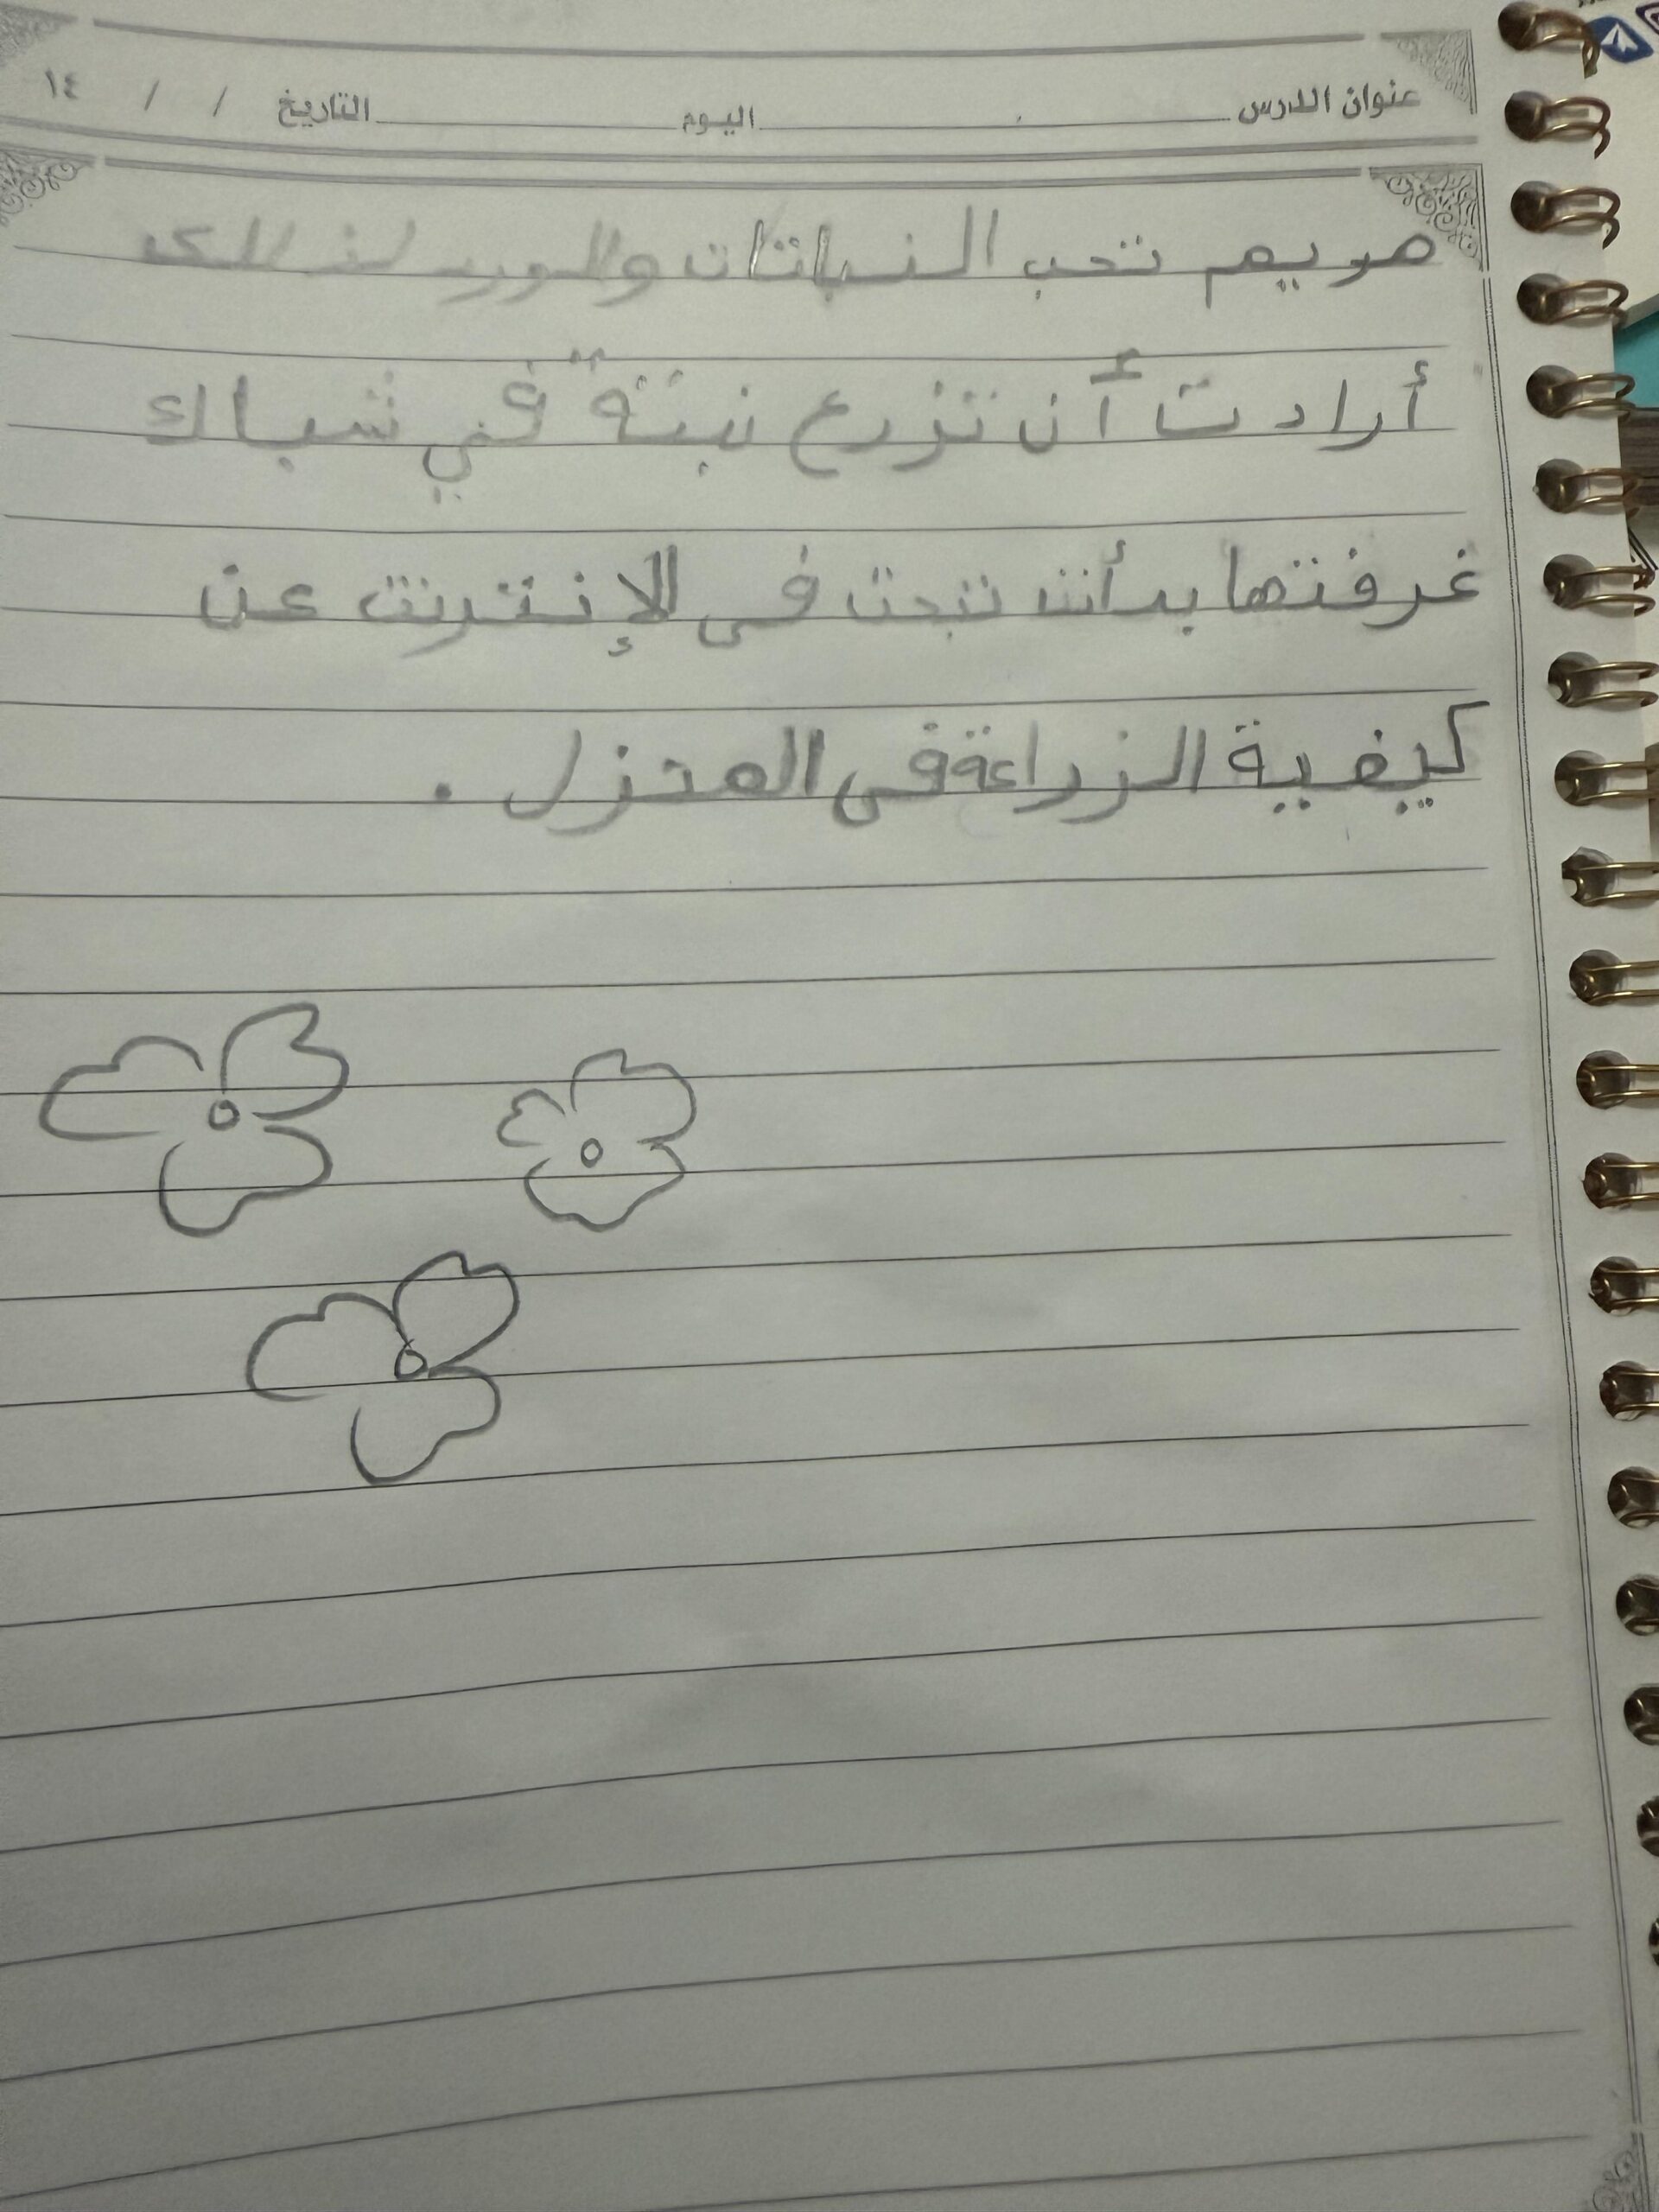 عنوان الدرس اليوم التاريخ / / ١٤
مريم تحب النباتات والورد لذلك
أرادت أن تزرع نبتة في شباك
غرفتها بدأت تبحت فى الإنترنت عن
كيفية الزراعة فى المنزل .